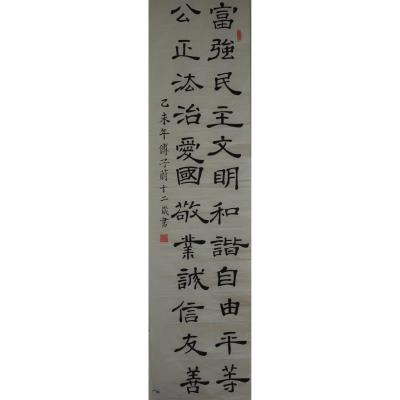 富強民主文明和諧自由平等
公正法治愛國敬業誠信友善
乙未年傅子蔚十二歲書